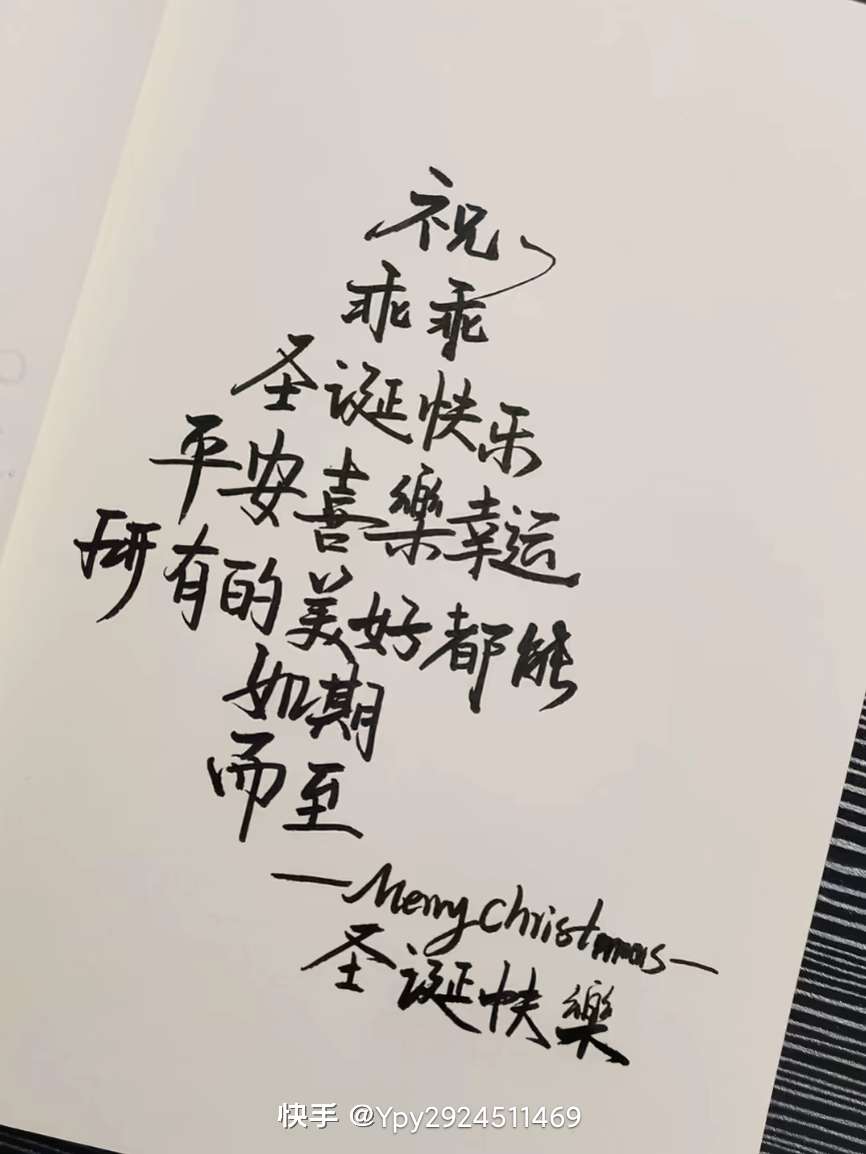 祝
乖乖
圣诞快乐
平安喜樂幸运
所有的美好都能
如期
而至
—Merry Christmas—
圣诞快樂
快手 @Ypy2924511469